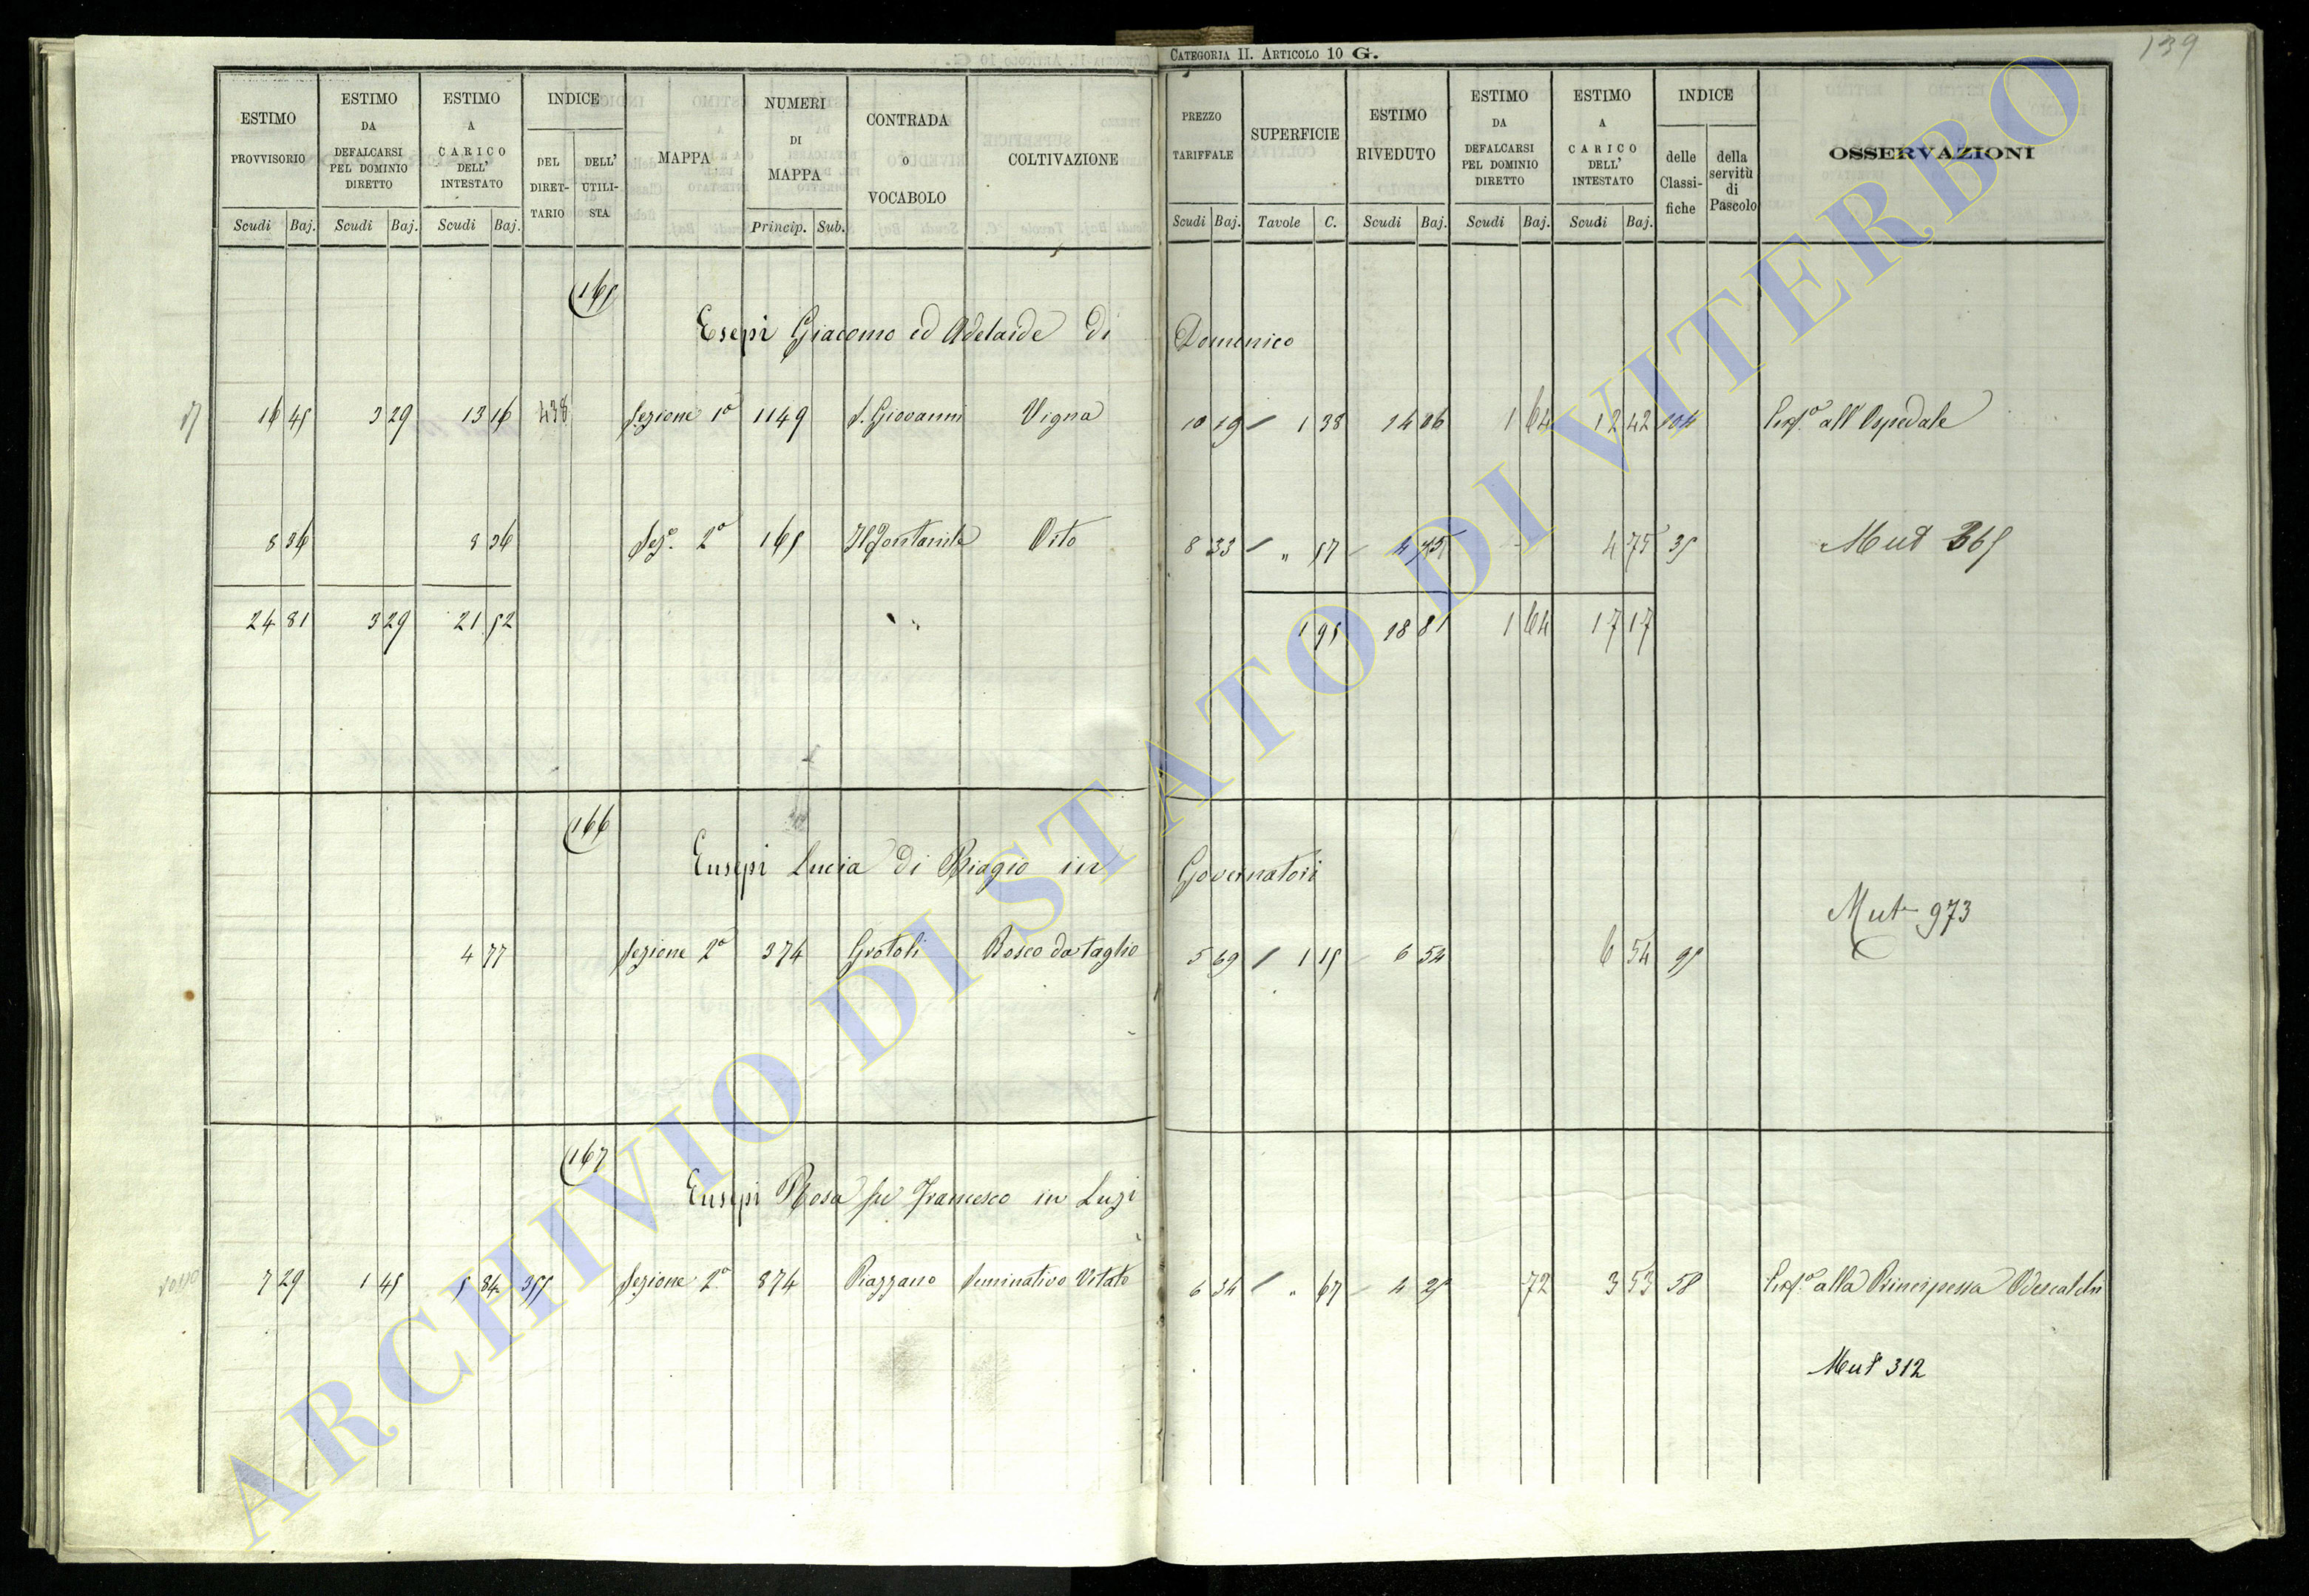 CATEGORIA II. ARTICOLO 10 G.
139
ESTIMO PROVVISORIO
ESTIMO DA DEFALCARSI PEL DOMINIO DIRETTO
ESTIMO A CARICO DELL' INTESTATO
INDICE
DEL DIRET-TARIO
DELL' UTILI-STA
MAPPA
NUMERI DI MAPPA
CONTRADA O VOCABOLO
COLTIVAZIONE
PREZZO TARIFFALE
SUPERFICIE
ESTIMO RIVEDUTO
ESTIMO DA DEFALCARSI PEL DOMINIO DIRETTO
ESTIMO A CARICO DELL' INTESTATO
INDICE
delle Classi-fiche
della servitù di Pascolo
OSSERVAZIONI
Scudi Baj. Scudi Baj. Scudi Baj. Princip. Sub. Scudi Baj. Tavole C. Scudi Baj. Scudi Baj. Scudi Baj.
165
Esepi Giacomo ed Adelaide di Domenico
16 45 3 29 13 16 438 Sezione 1a 1149 S. Giovanni Vigna 10 19 / 1 38 14 06 1 64 12 42 104 all'Ospedale
8 36 8 36 Seze. 2a 165 Il Fontanile Orto 8 33 / " 57 4 75 4 75 35 Mut 365
24 81 3 29 21 52 1 95 18 81 1 64 17 17
166
Eusepi Lucia di Biagio in Governatori
Mut 973
4 77 Sezione 2a 374 Grotoli Bosco da taglio 5 69 / 1 15 6 54 6 54 95
167
Eusepi Rosa fu Francesco in Luzi
7 29 1 45 5 84 355 Sezione 2a 874 Piazzano Seminativo Vitato 6 34 / " 67 4 25 72 3 53 58 alla Principessa Odescalchi
Mut 312
ARCHIVIO DI STATO DI VITERBO